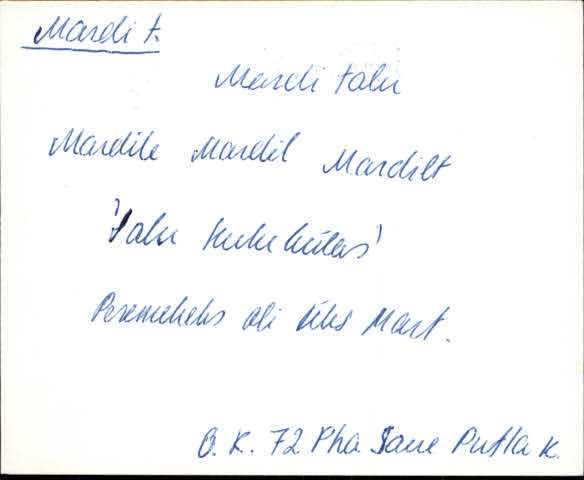 Mardi t.
Mardi talu
Mardile Mardil Mardilt
'talu Kukekülas'
Peremeheks oli üks Mart.
O. K. 72 Pha Saue Putla k.